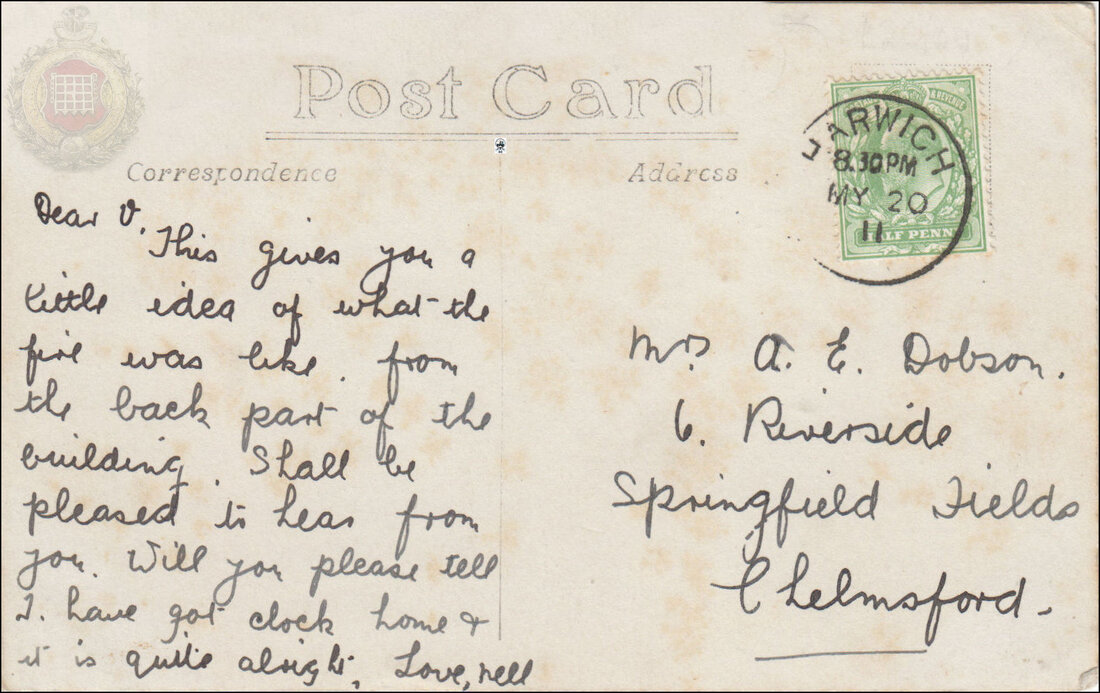 Post Card
Correspondence
Address
HARWICH
8.30PM
MY 20
11
& REVENUE
HALF PENNY
Dear V.
This gives you a
little idea of what the
fire was like. from
the back part of the
building. Shall be
pleased to hear from
you. Will you please tell
I. have got clock home &
it is quite alright. Love, nell
Mrs A. E. Dobson.
6. Riverside
Springfield Fields
Chelmsford.